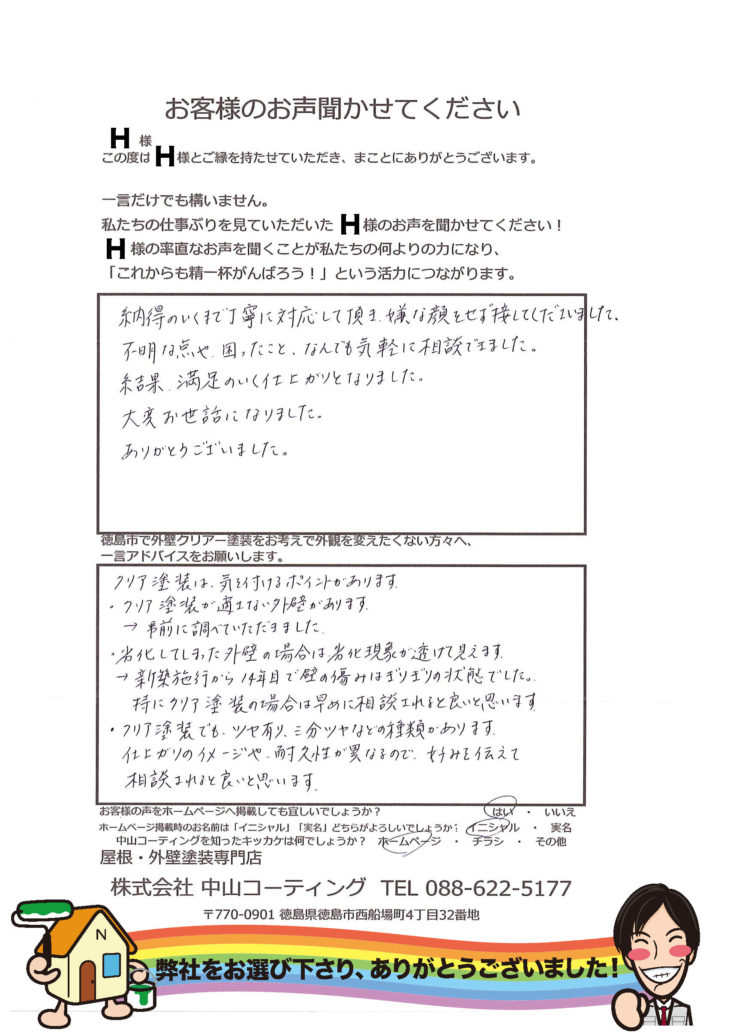 お客様のお声聞かせてください
H 様
この度は H 様とご縁を持たせていただき、まことにありがとうございます。
一言だけでも構いません。
私たちの仕事ぶりを見ていただいた H 様のお声を聞かせてください！
H 様の率直なお声を聞くことが私たちの何よりの力になり、
「これからも精一杯がんばろう！」という活力につながります。
納得のいくまで丁寧に対応して頂き、嫌な顔をせず接してくださいました、
不明な点や、困ったこと、なんでも気軽に相談できました。
結果、満足のいく仕上がりとなりました。
大変お世話になりました。
ありがとうございました。
徳島市で外壁クリアー塗装をお考えで外観を変えたくない方々へ、
一言アドバイスをお願いします。
クリア塗装は、気を付けるポイントがあります。
・クリア塗装が適さない外壁があります。
→事前に調べていただきました。
・劣化してしまった外壁の場合は劣化現象が透けて見えます。
→新築施行から14年目で壁の傷みはぎりぎりの状態でした。
特にクリア塗装の場合は早めに相談されると良いと思います
・クリア塗装でも、ツヤ有り、三分ツヤなどの種類があります。
仕上がりのイメージや、耐久性が異なるので、好みを伝えて
相談されると良いと思います。
お客様の声をホームページへ掲載しても宜しいでしょうか？ はい ・ いいえ
ホームページ掲載時のお名前は「イニシャル」「実名」どちらがよろしいでしょうか？ イニシャル ・ 実名
中山コーティングを知ったキッカケは何でしょうか？ ホームページ ・ チラシ ・ その他
屋根・外壁塗装専門店
株式会社 中山コーティング TEL 088-622-5177
〒770-0901 徳島県徳島市西船場町4丁目32番地
N
弊社をお選び下さり、ありがとうございました！